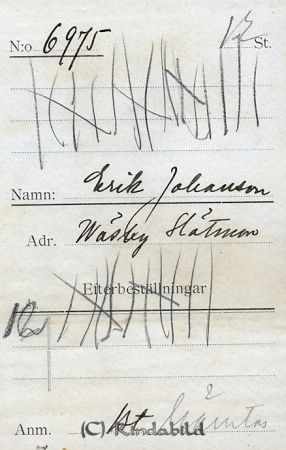 N:o 6975 12 St.
Namn: Erik Johanson
Adr. Wäsby Slätmon
Efterbeställningar
Anm. 1 st
(C) Kindabild